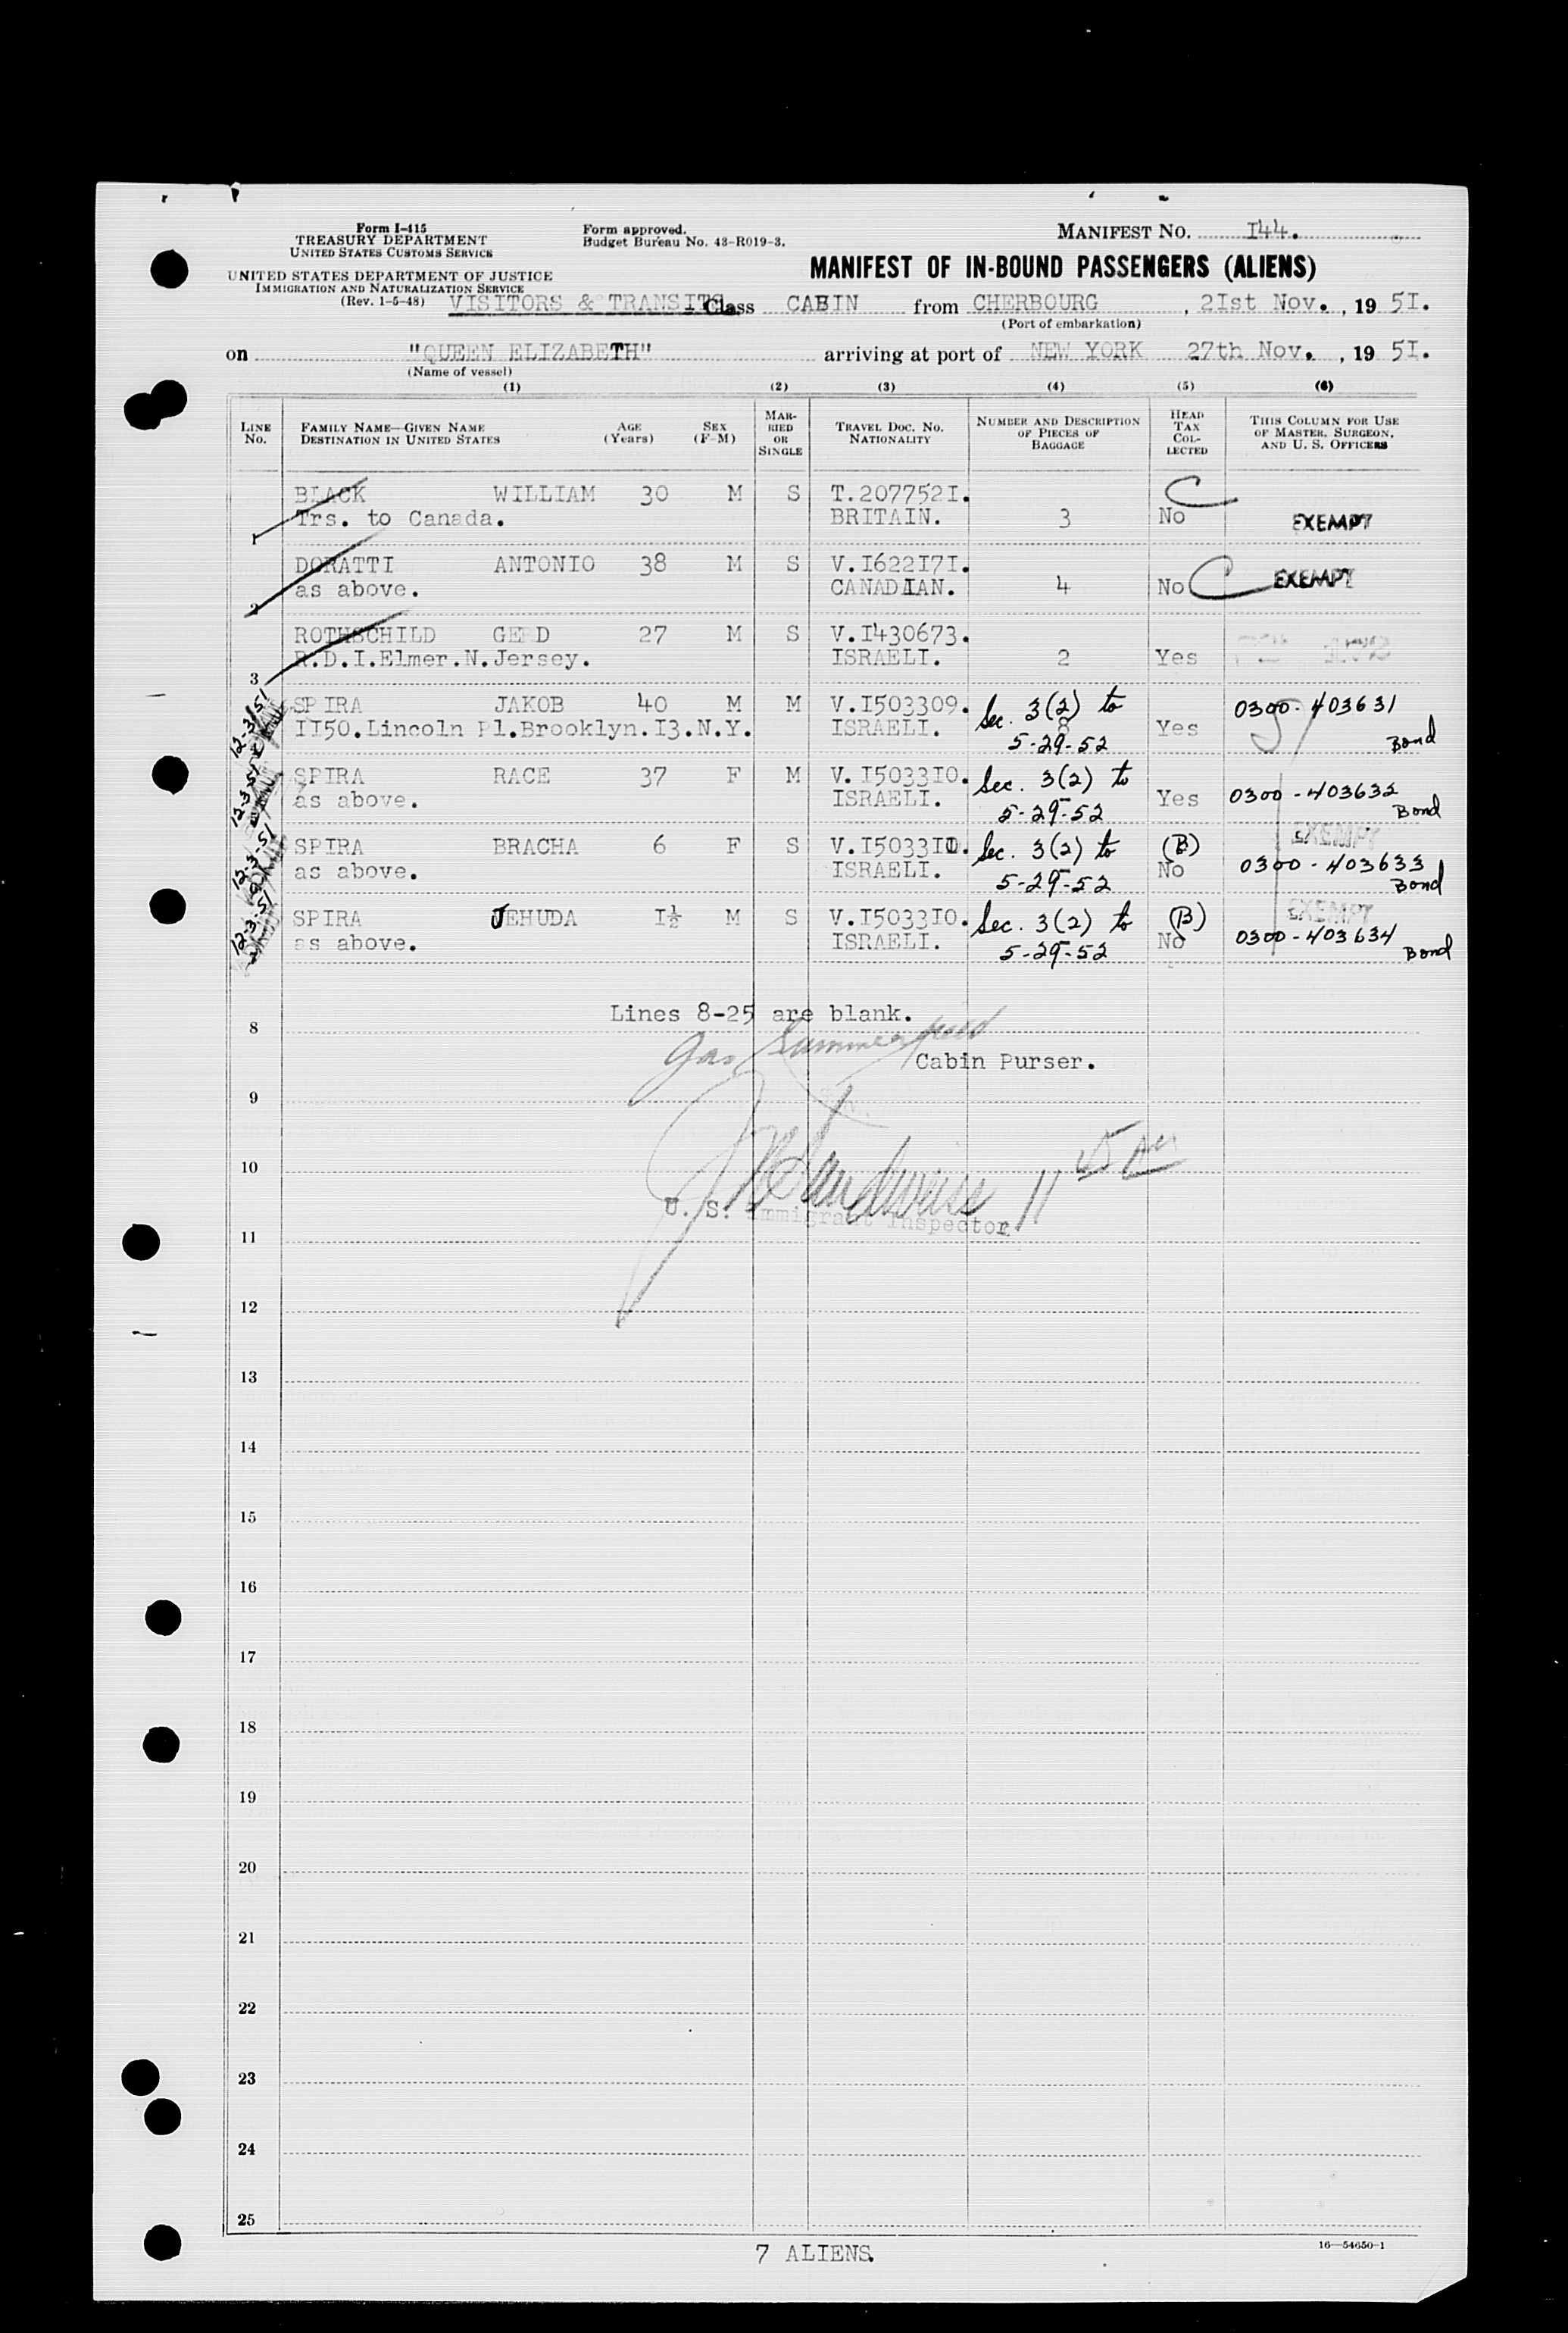 Form I-415
TREASURY DEPARTMENT
UNITED STATES CUSTOMS SERVICE
UNITED STATES DEPARTMENT OF JUSTICE
IMMIGRATION AND NATURALIZATION SERVICE
(Rev. 1-5-48)
Form approved.
Budget Bureau No. 43-R019-3.
MANIFEST No. I44.
MANIFEST OF IN-BOUND PASSENGERS (ALIENS)
VISITORS & TRANSITS Class CABIN from CHERBOURG, 2Ist Nov., 19 5I.
(Port of embarkation)
on "QUEEN ELIZABETH" arriving at port of NEW YORK 27th Nov., 19 5I.
(Name of vessel)
(1) (2) (3) (4) (5) (6)
LINE No. FAMILY NAME—GIVEN NAME DESTINATION IN UNITED STATES AGE (Years) SEX (F-M) MARRIED OR SINGLE TRAVEL DOC. NO. NATIONALITY NUMBER AND DESCRIPTION OF PIECES OF BAGGAGE HEAD TAX COLLECTED THIS COLUMN FOR USE OF MASTER, SURGEON, AND U. S. OFFICERS
BLACK WILLIAM 30 M S T.207752I. C
1 Trs. to Canada. BRITAIN. 3 No EXEMPT
DORATTI ANTONIO 38 M S V.I622I7I.
2 as above. CANADIAN. 4 No C EXEMPT
ROTHSCHILD GE D 27 M S V.I430673.
3 R.D.I.Elmer.N.Jersey. ISRAELI. 2 Yes
12-3-51 SPIRA JAKOB 40 M M V.I503309. Sec. 3(2) to 0300-403631
II50.Lincoln Pl.Brooklyn.I3.N.Y. ISRAELI. 8 5-29-52 Yes Bond
12-3-51 SPIRA RACE 37 F M V.I5033I0. Sec. 3(2) to
as above. ISRAELI. 5-29-52 Yes 0300-403632 Bond
12-3-51 SPIRA BRACHA 6 F S V.I5033I0. Sec. 3(2) to (B) EXEMPT
as above. ISRAELI. 5-29-52 No 0300-403633 Bond
12-3-51 SPIRA JEHUDA I½ M S V.I5033I0. Sec. 3(2) to (B) EXEMPT
as above. ISRAELI. 5-29-52 No 0300-403634 Bond
Lines 8-25 are blank.
8
Cabin Purser.
9
10
11 45 AM
U. S. Immigrant Inspector
11
12
13
14
15
16
17
18
19
20
21
22
23
24
25
7 ALIENS.
16—54650-1